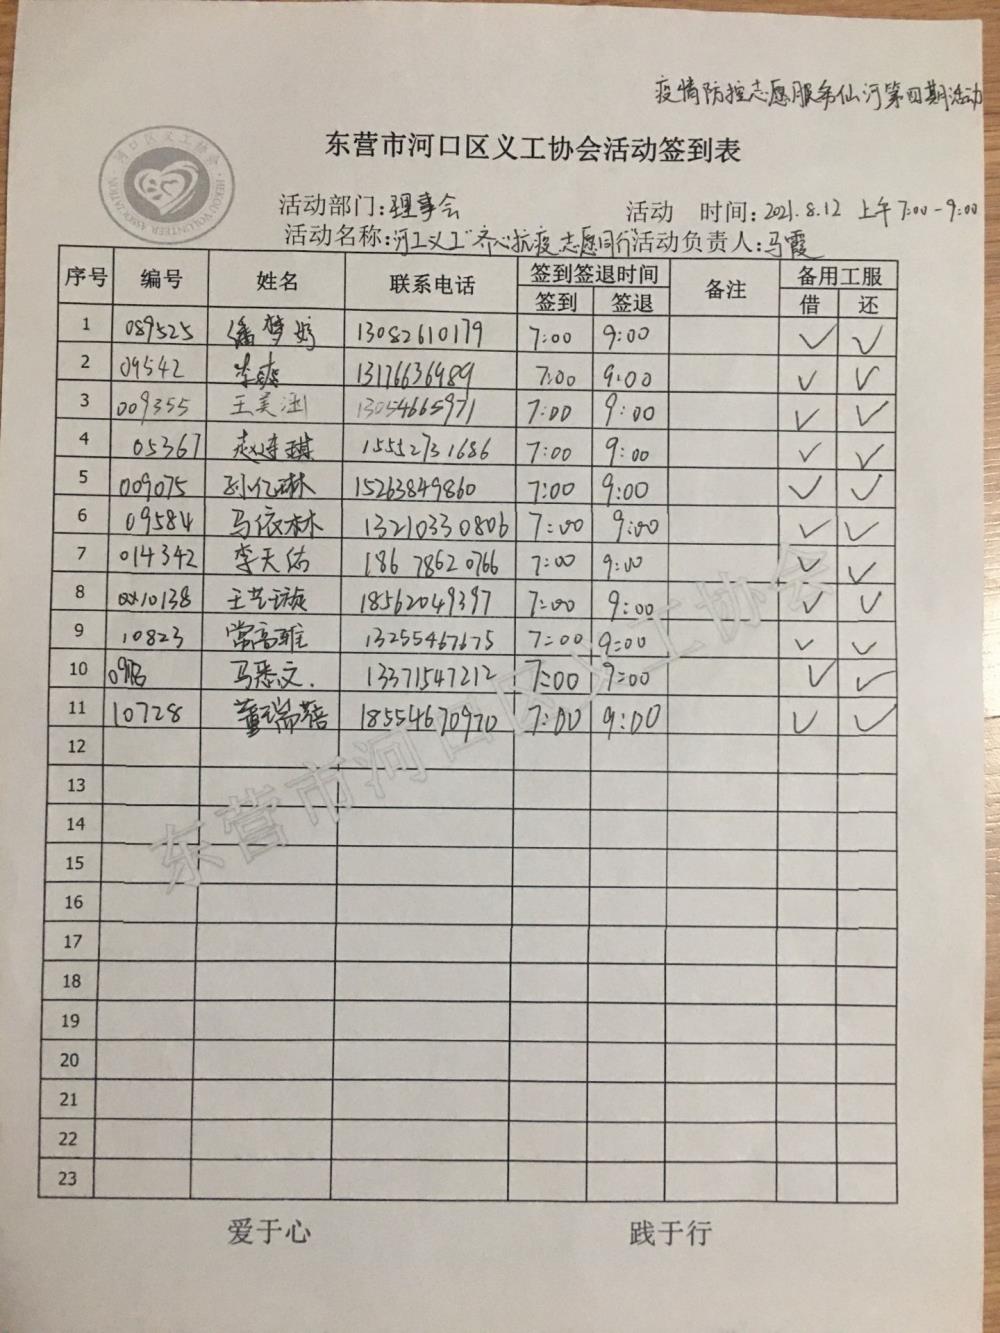 疫情防控志愿服务仙河第四期活动
东营市河口区义工协会活动签到表
河口区义工协会
HEKOU VOLUNTEER ASSOCIATION
活动部门:理事会 活动 时间:2021.8.12 上午7:00-9:00
活动名称:河工义工"齐心抗疫 志愿同行 活动负责人:马霞
序号 编号 姓名 联系电话 签到签退时间 备注 备用工服
签到 签退 借 还
1 089525 潘梦婷 13082610179 7:00 9:00 ✓ ✓
2 09542 李爽 13176636989 7:00 9:00 ✓ ✓
3 009355 王美涵 13054665971 7:00 9:00 ✓ ✓
4 05367 赵连琪 15552731686 7:00 9:00 ✓ ✓
5 009075 孙亿琳 15263849860 7:00 9:00 ✓ ✓
6 09584 马依林 13210330806 7:00 9:00 ✓ ✓
7 014342 李天佑 18678620766 7:00 9:00 ✓ ✓
8 10138 王艺璇 18562049397 7:00 9:00 ✓ ✓
9 10823 常高雅 13255467675 7:00 9:00 ✓ ✓
10 马 文 13371547212 7:00 9:00 ✓ ✓
11 10728 董瑞蓓 18554670970 7:00 9:00 ✓ ✓
12
13
14
15
16
17
18
19
20
21
22
23
东营市河口区义工协会
爱于心 践于行